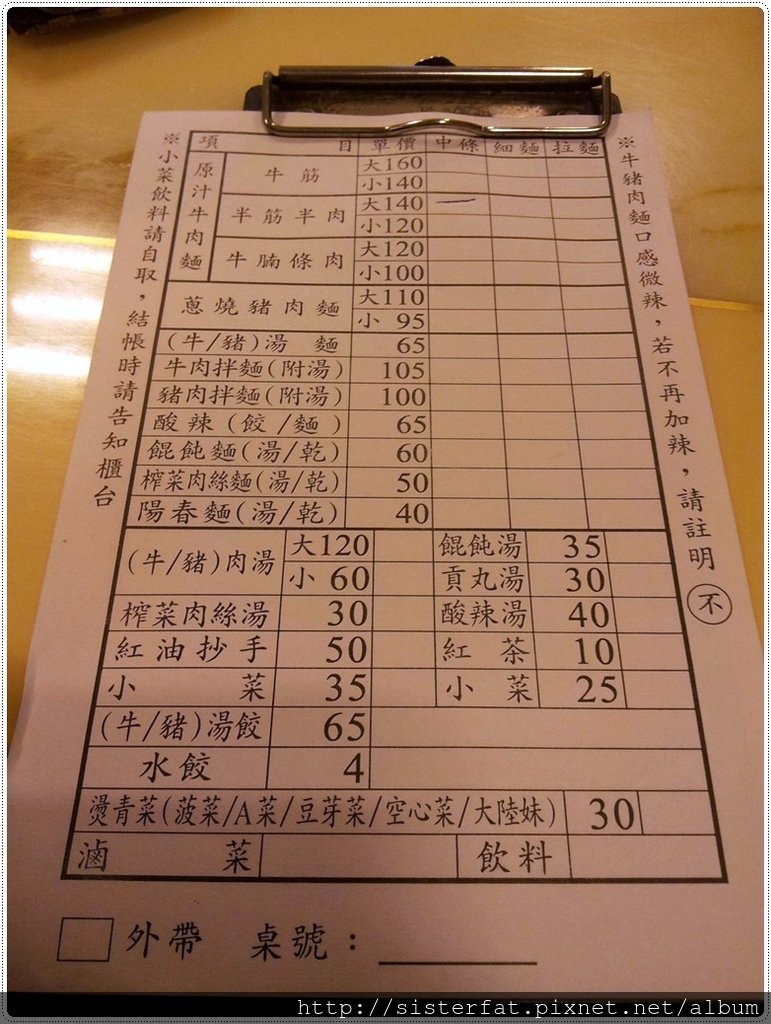 ※小菜飲料請自取，結帳時請告知櫃台
項目 單價 中條 細麵 拉麵
原汁牛肉麵
牛筋 大160
小140
半筋半肉 大140 一
小120
牛腩條肉 大120
小100
蔥燒豬肉麵 大110
小 95
(牛/豬)湯 麵 65
牛肉拌麵(附湯) 105
豬肉拌麵(附湯) 100
酸辣(餃/麵) 65
餛飩麵(湯/乾) 60
榨菜肉絲麵(湯/乾) 50
陽春麵(湯/乾) 40
(牛/豬)肉湯 大120 餛飩湯 35
小 60 貢丸湯 30
榨菜肉絲湯 30 酸辣湯 40
紅油抄手 50 紅茶 10
小菜 35 小菜 25
(牛/豬)湯餃 65
水餃 4
燙青菜(菠菜/A菜/豆芽菜/空心菜/大陸妹) 30
滷菜 飲料
※牛豬肉麵口感微辣，若不再加辣，請註明 不
外帶 桌號：
http://sisterfat.pixnet.net/album